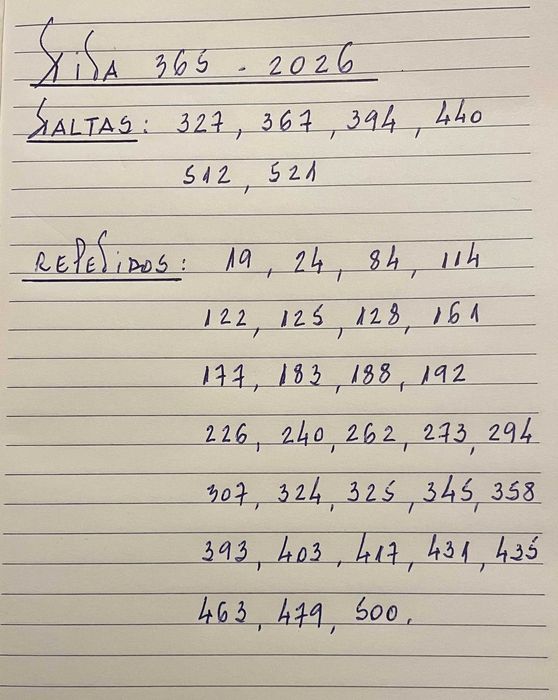 FiFA 365 - 2026
FALTAS: 327, 367, 394, 440
512, 521
REPETiDOS: 19, 24, 84, 114
122, 125, 128, 161
177, 183, 188, 192
226, 240, 262, 273, 294
307, 324, 325, 345, 358
393, 403, 417, 431, 435
463, 479, 500.